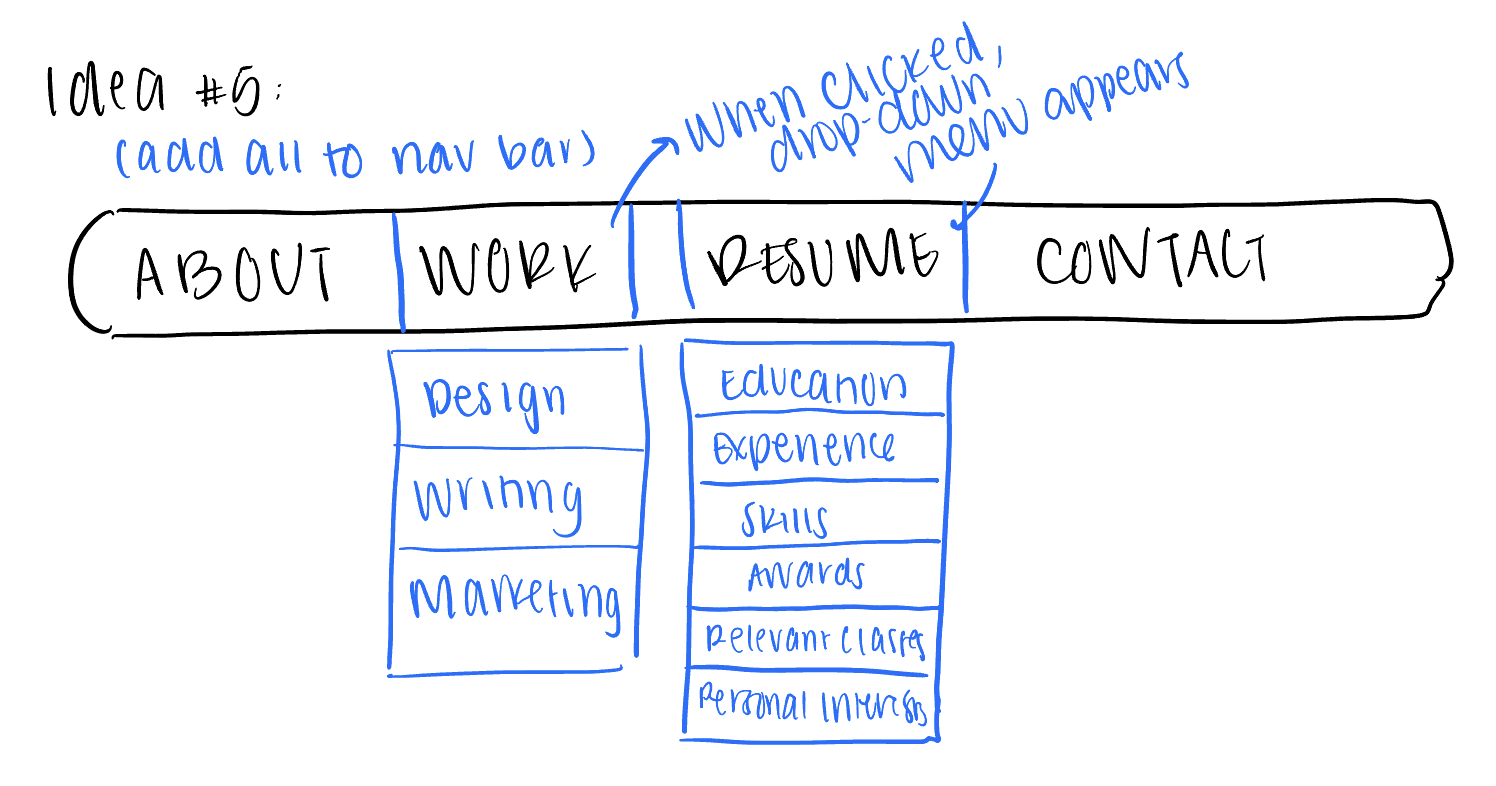 Idea #5:
(add all to nav bar)
when clicked,
drop-down
menu appears
ABOUT WORK RESUME CONTACT
Design
Writing
Marketing
Education
Experience
Skills
Awards
Relevant Classes
Personal Interests